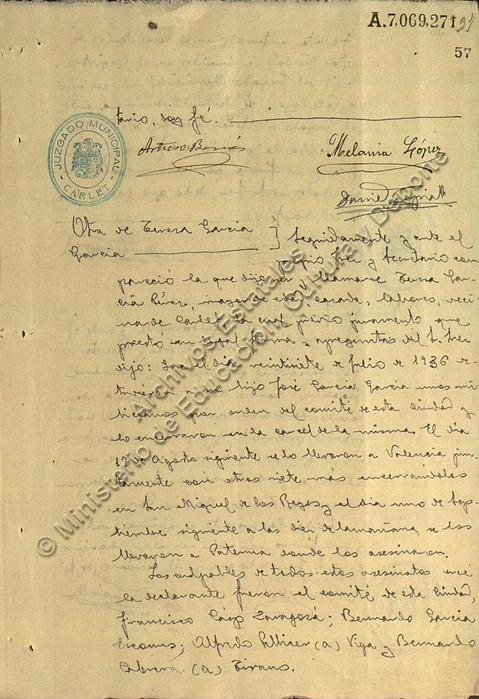 A.7.069.271
57
tario, doy fé.
JUZGADO MUNICIPAL
CARLET
Arturo
Melania López
Daniel
Otra de Teresa García
García
Seguidamente y ante el
propio Juez y Secretario com-
pareció la que dijo ser y llamarse Teresa Gar-
cía mayor de edad, casada, labores, veci-
na de Carlet la cual previo juramento que
prestó en legal forma a preguntas del S. Juez
dijo: Que el día veintisiete de Julio de 1936 de-
tuvieron a su hijo José García García unos mi-
licianos por orden del comité de esta ciudad y
lo encerraron en la carcel de la misma. El día
17 de Agosto siguiente se lo llevaron a Valencia jun-
tamente con otros siete más encerrandolos
en San Miguel de los Reyes y el día uno de Sep-
tiembre siguiente a las diez de la mañana se los
llevaron a Paterna donde los asesinaron.
Los culpables de todos estos asesinatos
la declarante fueron el comité de esta Ciudad,
Francisco Zaragozá; Bernardo García
Alfredo Pellicer (a) Viga y Bernardo
Cabrera (a)
© Ministerio de Educación, Cultura y Deporte
Archivos Estatales